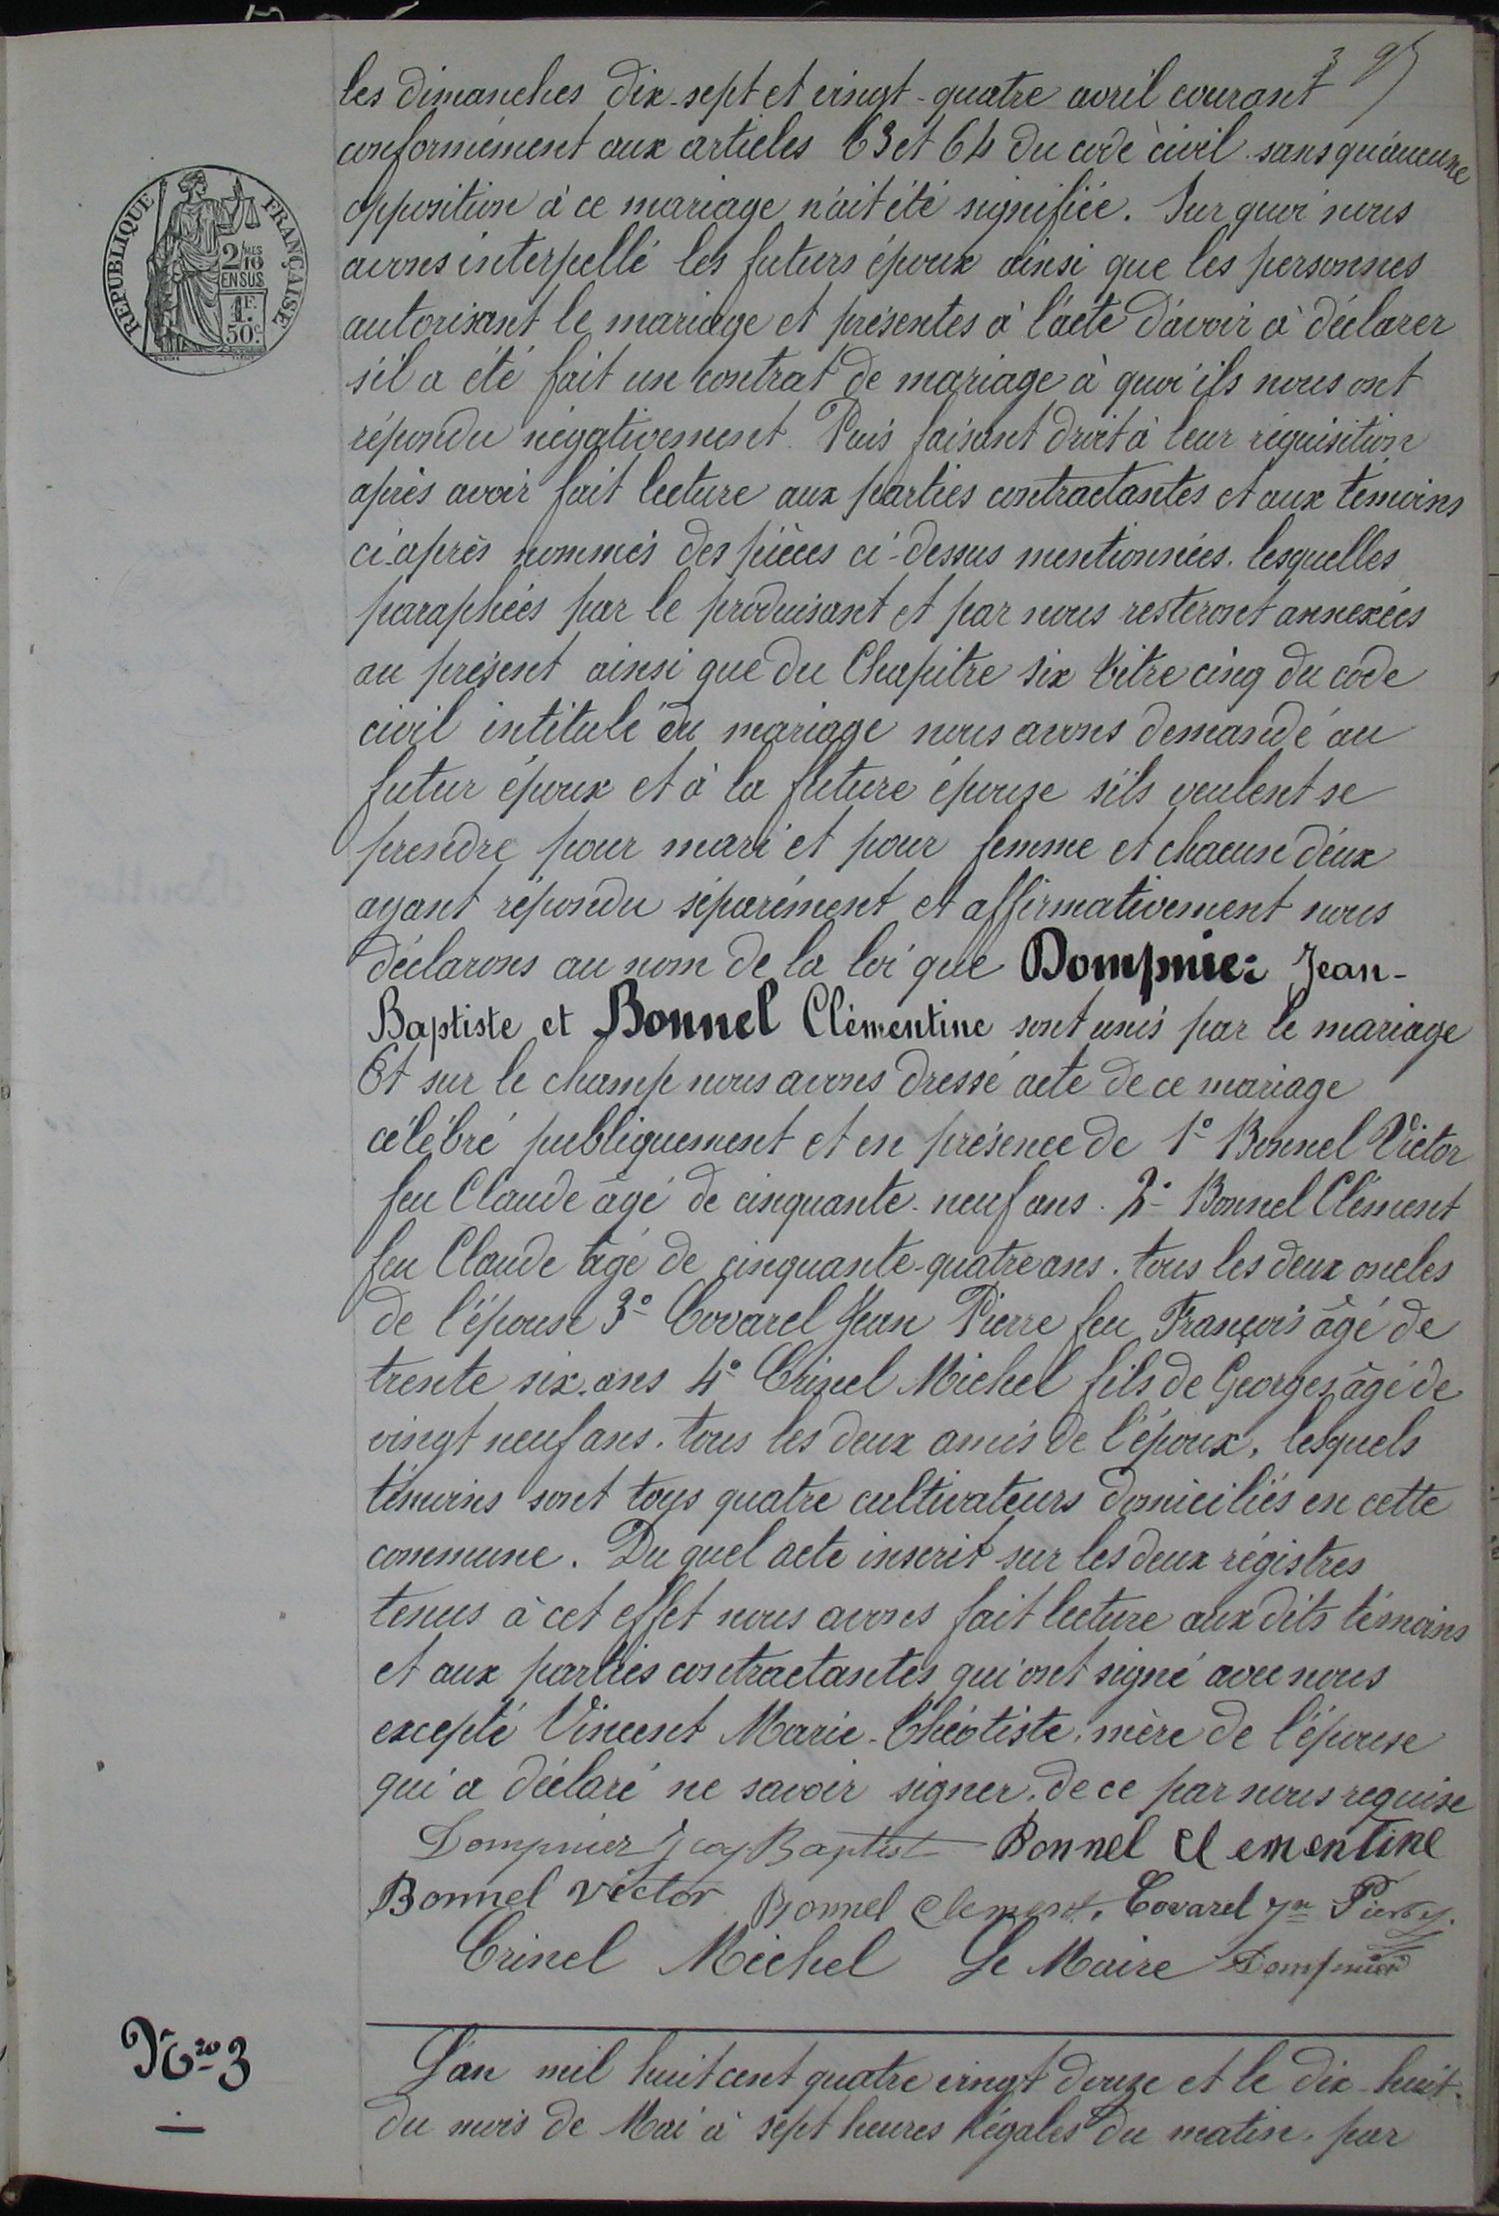 3 95
les dimanches dix-sept et vingt-quatre avril courant
conformément aux articles 63 et 64 du code civil sans qu'aucune
opposition à ce mariage n'ait été signifiée. Sur quoi nous
avons interpellé les futurs époux ainsi que les personnes
autorisant le mariage et présentes à l'acte d'avoir à déclarer
s'il a été fait un contrat de mariage à quoi ils nous ont
répondu négativement. Puis faisant droit à leur réquisition
après avoir fait lecture aux parties contractantes et aux témoins
ci-après nommés des pièces ci-dessus mentionnées. lesquelles
paraphées par le produisant et par nous resteront annexées
au présent ainsi que du Chapitre six titre cinq du code
civil intitulé du mariage nous avons demandé au
futur époux et à la future épouse s'ils veulent se
prendre pour mari et pour femme et chacun d'eux
ayant répondu séparément et affirmativement nous
déclarons au nom de la loi que Dompnier Jean-
Baptiste et Bonnel Clémentine sont unis par le mariage
Et sur le champ nous avons dressé acte de ce mariage
célébré publiquement et en présence de 1° Bonnel Victor
feu Claude âgé de cinquante-neuf ans. 2° Bonnel Clément
feu Claude âgé de cinquante-quatre ans. tous les deux oncles
de l'épouse 3° Covarel Jean Pierre feu François âgé de
trente six ans 4° Crinel Michel fils de Georges âgé de
vingt neuf ans. tous les deux amis de l'époux, lesquels
témoins sont tous quatre cultivateurs domiciliés en cette
commune. Du quel acte inscrit sur les deux régistres
tenus à cet effet nous avons fait lecture aux dits témoins
et aux parties contractantes qui ont signé avec nous
excepté Vincent Marie-Théotiste, mère de l'épouse
qui a déclaré ne savoir signer. de ce par nous requise
Dompnier Jean Baptist Bonnel Clementine
Bonnel victor Bonnel Clement. Covarel Jn Pierre
Crinel Michel Le Maire Dompnier
REPUBLIQUE FRANÇAISE
2/10 MES
EN SUS
1F.
50c.
Nro 3
L'an mil huit cent quatre vingt douze et le dix-huit
du mois de Mai à sept heures légales du matin. par